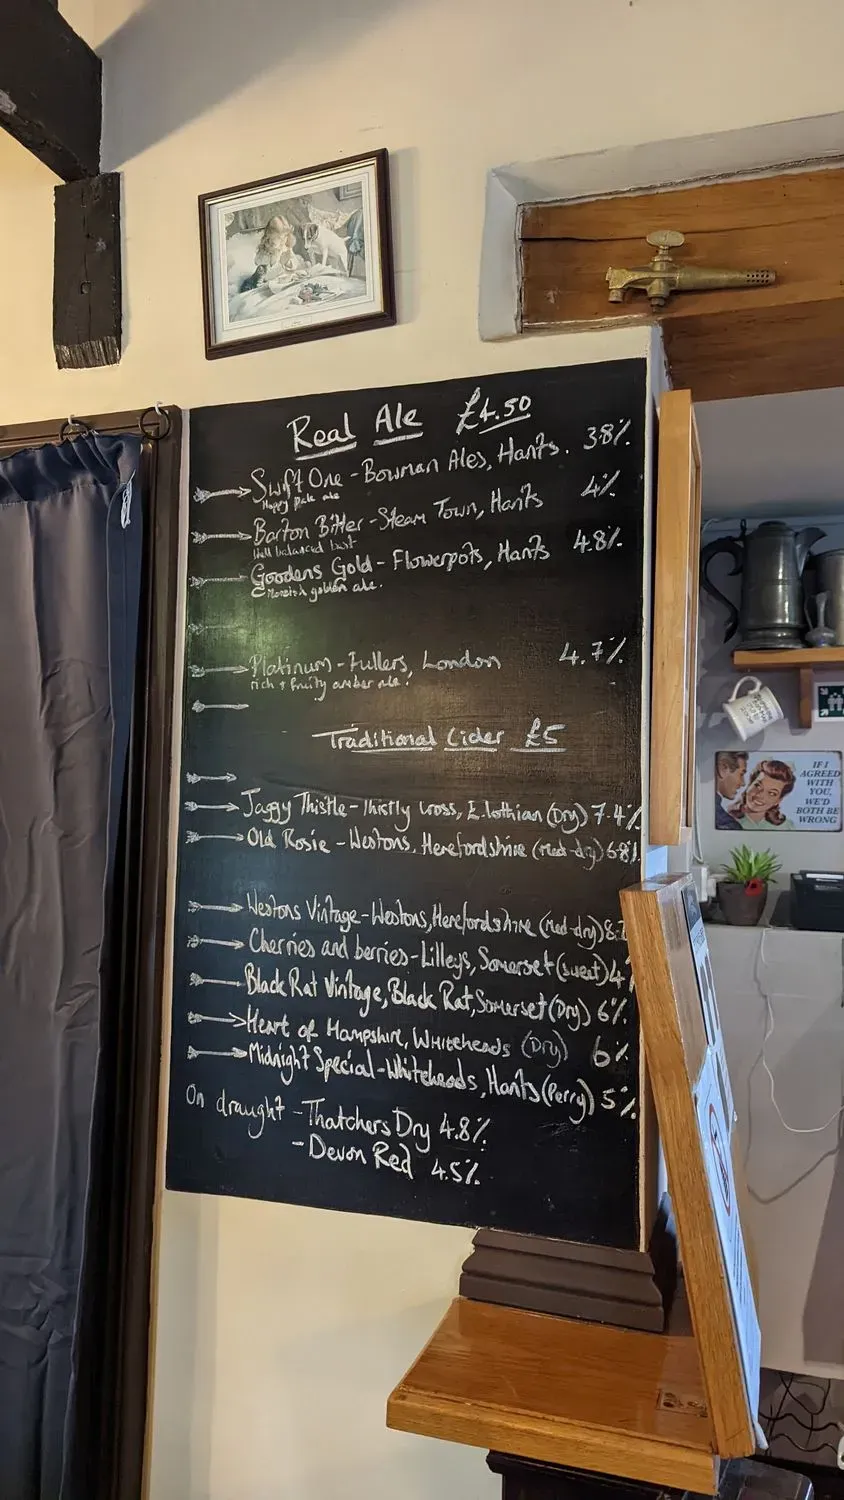 Real Ale £4.50
Swift One - Bowman Ales, Hants. 3.8%
Hoppy pale ale
Barton Bitter - Steam Town, Hants 4%
Well balanced best
Goodens Gold - Flowerpots, Hants 4.8%
golden ale.
Platinum - Fullers, London 4.7%
rich & fruity amber ale.
Traditional Cider £5
Jaggy Thistle - Thistly Cross, E. Lothian (Dry) 7.4%
Old Rosie - Westons, Herefordshire (med-dry) 6.8%
Westons Vintage - Westons, Herefordshire (med-dry) 8.
Cherries and berries - Lilleys, Somerset (sweet) 4%
Black Rat Vintage, Black Rat, Somerset (Dry) 6%
Heart of Hampshire, Whiteheads (Dry) 6%
Midnight Special - Whiteheads, Hants (Perry) 5%
On draught - Thatchers Dry 4.8%
- Devon Red 4.5%
IF I
AGREED
WITH
YOU,
WE'D
BOTH BE
WRONG